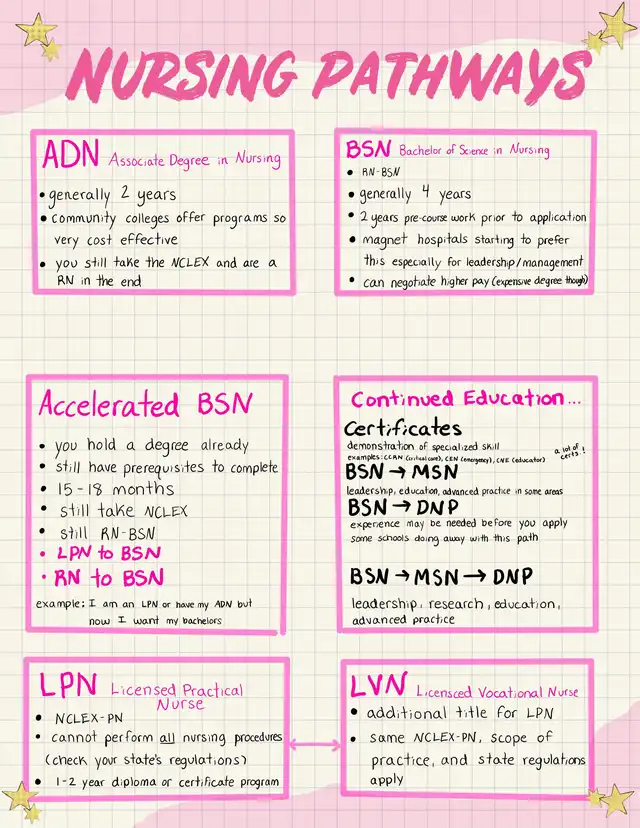 NURSING PATHWAYS
ADN Associate Degree in Nursing
• generally 2 years
• community colleges offer programs so
very cost effective
• you still take the NCLEX and are a
RN in the end
BSN Bachelor of Science in Nursing
• RN-BSN
• generally 4 years
• 2 years pre-course work prior to application
• magnet hospitals starting to prefer
this especially for leadership/management
• can negotiate higher pay (expensive degree though)
Accelerated BSN
• you hold a degree already
• still have prerequisites to complete
• 15-18 months
• still take NCLEX
• still RN-BSN
• LPN to BSN
• RN to BSN
example: I am an LPN or have my ADN but
now I want my bachelors
Continued Education...
Certificates
demonstration of specialized skill
examples: CCRN (critical care), CEN (emergency), CNE (educator)
a lot of
certs.!
BSN → MSN
leadership, education, advanced practice in some areas
BSN → DNP
experience may be needed before you apply
some schools doing away with this path
BSN → MSN → DNP
leadership, research, education,
advanced practice
LPN Licensed Practical
Nurse
• NCLEX-PN
• cannot perform all nursing procedures
(check your state's regulations)
• 1-2 year diploma or certificate program
LVN Licensced Vocational Nurse
• additional title for LPN
• same NCLEX-PN, scope of
practice, and state regulations
apply